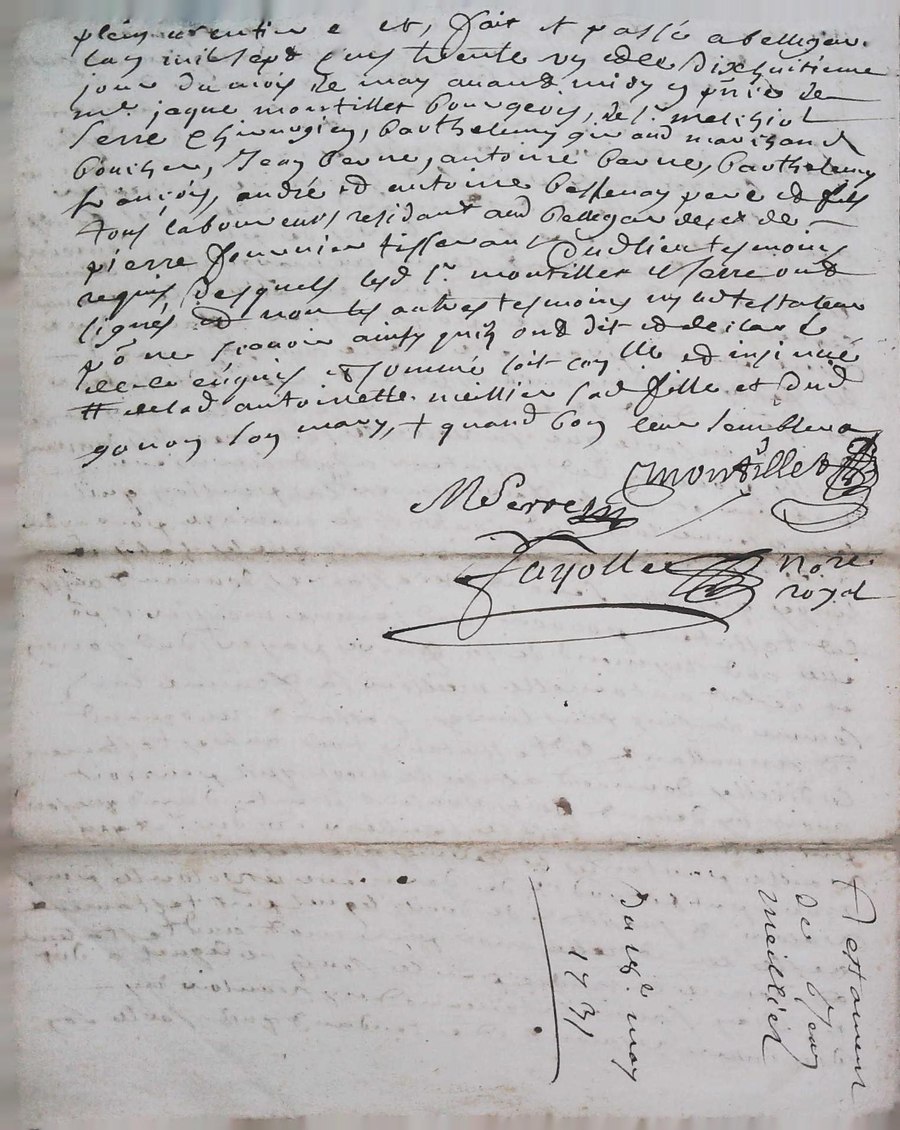 fait et passé a bellegarde
lan mil sept cens trente un et le dixhuitieme
jour du mois de may avant midy en pnce de
me jaque montillet bourgeois, de sr melchiol
serre chirurgien, barthelemy giraud marchand
boucher, Jean berne, antoine berne, barthelemy
françois, andré et antoine bastenay pere et fils
tous laboureurs, residant aud bellegarde, et de
pierre fournier tisserant dudlieu tesmoins
requis desquels lesd sr montillet et serre ont
signés et non les autres tesmoins ny led testateur
po ne scavoir ainsy quils ont dit et declaré
de ce enquis et sommé soit con lle et insinué
# delad antoinette meillier sad fille et dud
gonon son mary, + quand bon leur semblera
montillet
MSerre
fayolle nore
royal
Testament
de Jean
meillier
du 18e may
1731